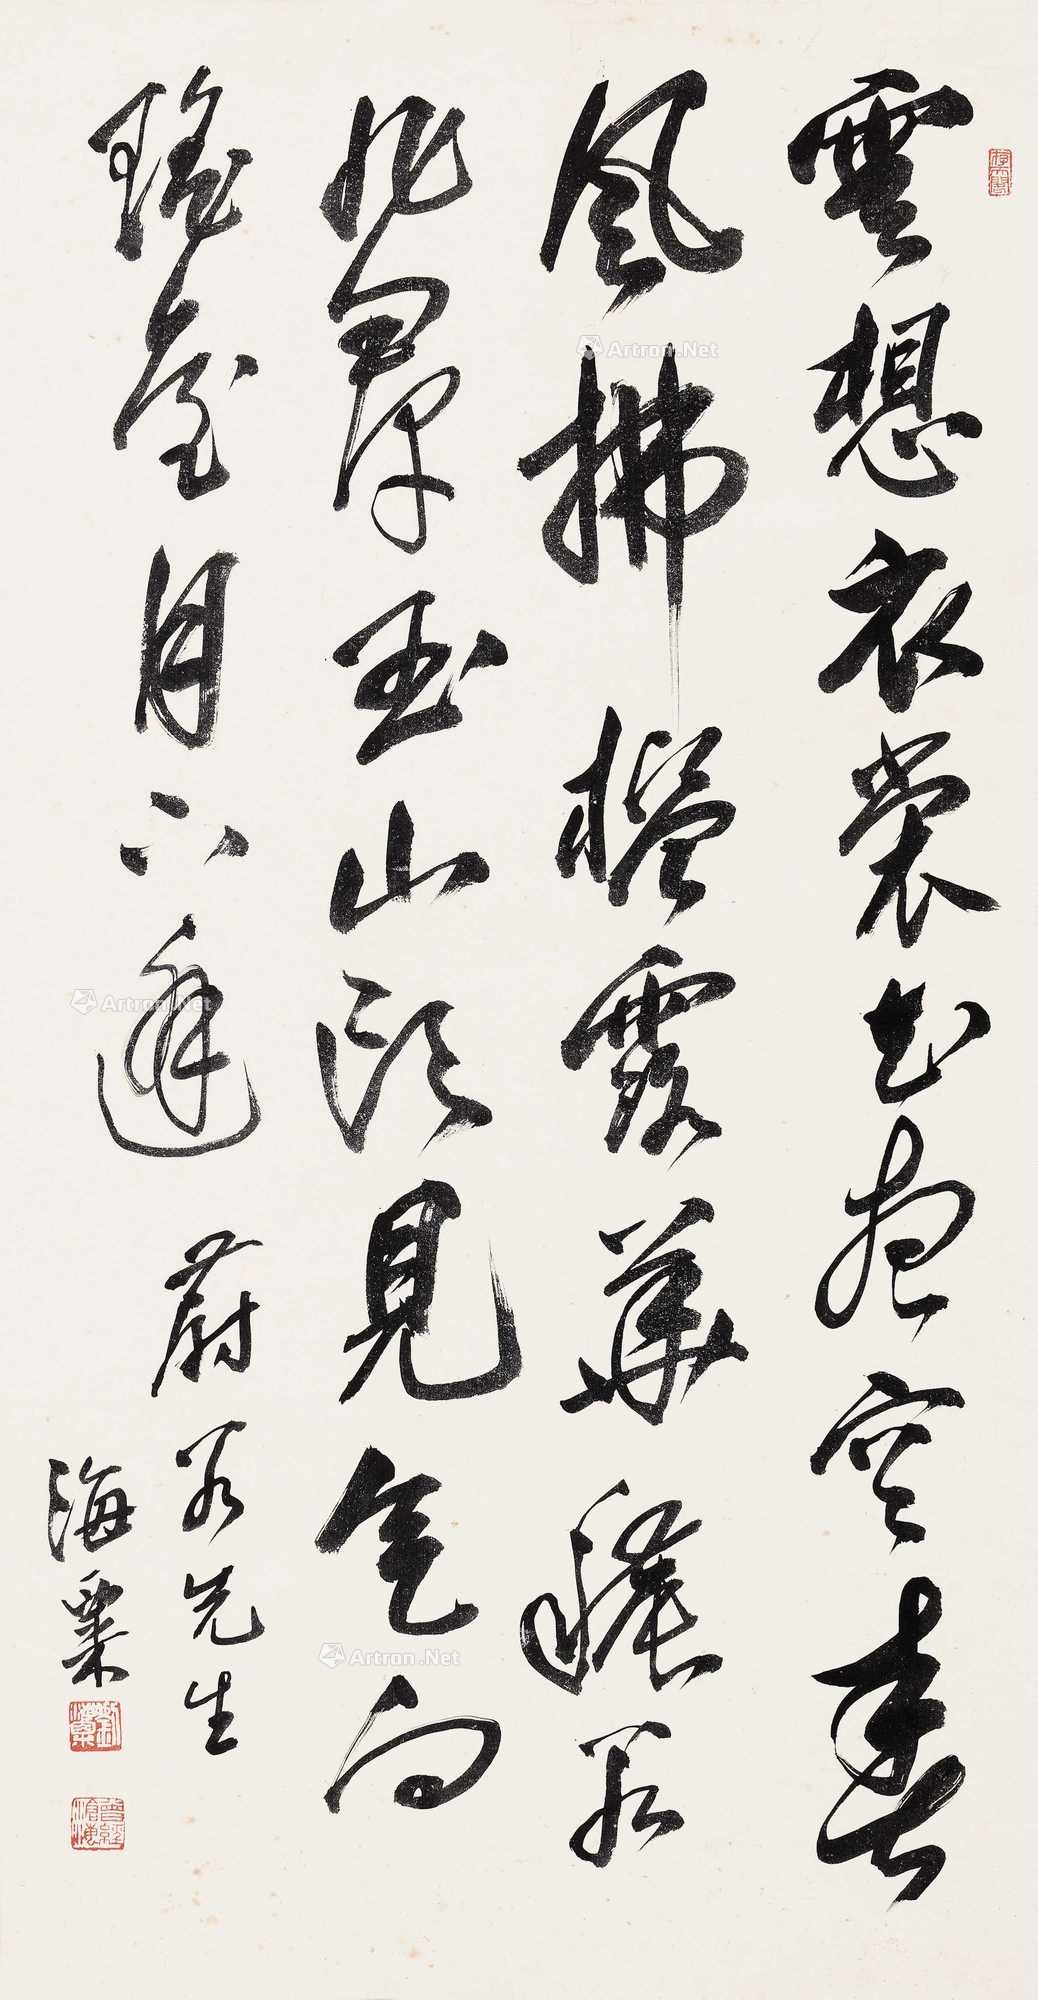 雲想衣裳花想容春
風拂檻露華穠若
非羣玉山頭見會向
瑤臺月下逢 蔚若先生
海粟
劉海粟
曾經滄海
Artron.Net
Artron.Net
Artron.Net